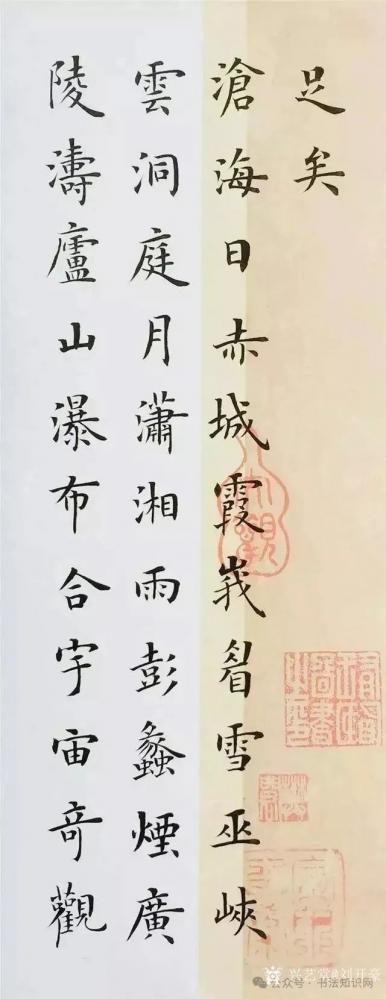 足矣
滄海日赤城霞峩眉雪巫峽
雲洞庭月瀟湘雨彭蠡煙廣
陵濤廬山瀑布合宇宙奇觀
兴艺堂@刘开豪
公众号·书法知识网